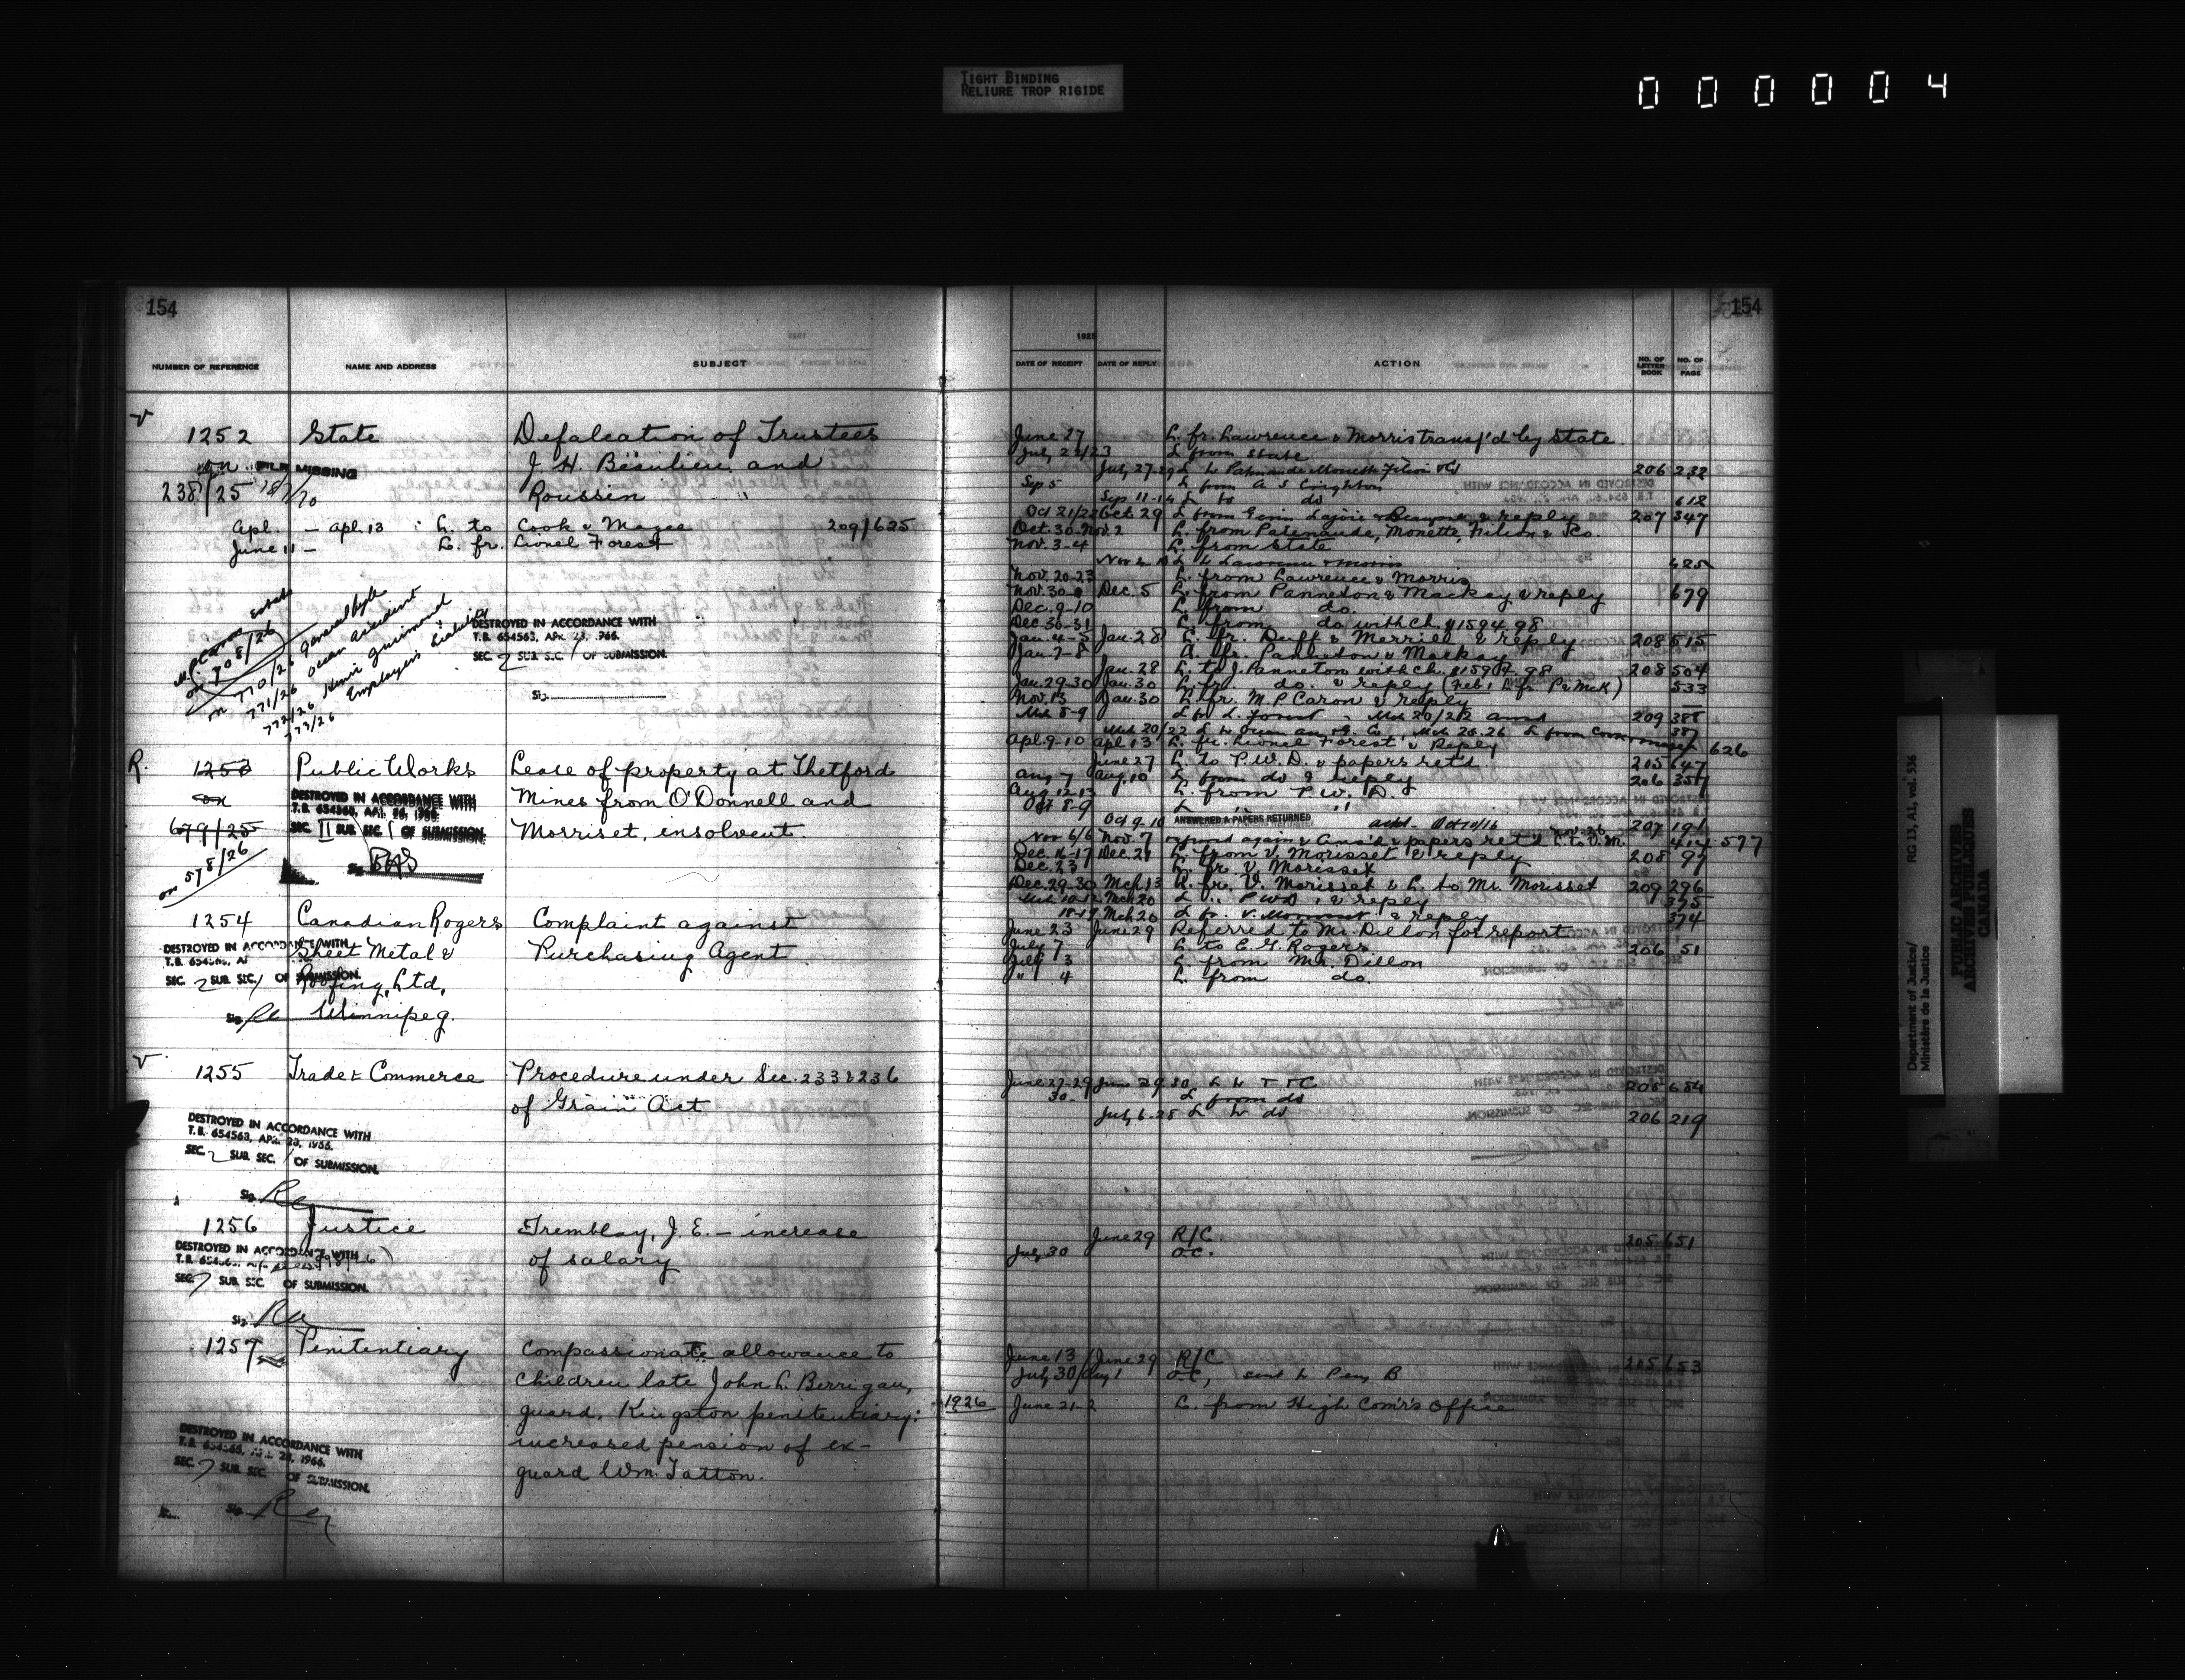 TIGHT BINDING
RELIURE TROP RIGIDE
0 0 0 0 0 4
154
NUMBER OF REFERENCE NAME AND ADDRESS SUBJECT
1252 State Defalcation of Trustees
on FILE MISSING J. H. Beaulieu and
238/25 Roussin
Apl. — Apl. 13 L. to Cook & Magee 209/625
June 11 — L. fr. Lionel Forest
M.P. Caron Estate
on 708/26
on 770/26 General Accident
771/26 Ocean Accident
772/26 Henri Guimond
773/26 Employers Liability
DESTROYED IN ACCORDANCE WITH
T.B. 654563, APR. 28, 1966.
SEC. 2 SUB. SEC. 1 OF SUBMISSION.
Sig.
R. 1253 Public Works Lease of property at Thetford
on DESTROYED IN ACCORDANCE WITH Mines from O'Donnell and
T.B. 654563, APR. 28, 1966.
679/25 SEC. II SUB. SEC. 1 OF SUBMISSION. Morriset, insolvent.
on 578/26
Sig.
1254 Canadian Rogers Complaint against
DESTROYED IN ACCORDANCE WITH
Sheet Metal & Purchasing Agent
T.B. 654563,
SEC. 2 SUB. SEC. 1 OF SUBMISSION.
Roofing, Ltd,
Sig. Winnipeg.
1255 Trade & Commerce Procedure under Sec. 233 & 236
of Grain Act
DESTROYED IN ACCORDANCE WITH
T.B. 654563, APR. 28, 1966.
SEC. 2 SUB. SEC. 1 OF SUBMISSION.
Sig.
1256 Justice Tremblay, J. E. — increase
DESTROYED IN ACCORDANCE WITH
of salary
SEC. 7 SUB. SEC. OF SUBMISSION.
Sig.
1257 Penitentiary Compassionate allowance to
children late John L. Berrigan,
guard, Kingston penitentiary:
increased pension of ex-
guard Wm. Tatton.
DESTROYED IN ACCORDANCE WITH
T.B. 654563, APR. 28, 1966.
SEC. 7 SUB. SEC. OF SUBMISSION.
Sig.
154
1925
DATE OF RECEIPT DATE OF REPLY ACTION NO. OF LETTER BOOK NO. OF PAGE
June 27 L. fr. Lawrence & Morris transf'd by State
July 22/23 L from State
July 27-29 L to Patenaude Monette Filion & Co 206 232
Sep 5 L from A S Creighton
Sep 11-14 L to do 612
Oct 21/22 Oct 29 L from Gerin Lajoie & Beaupre & reply 207 347
Oct. 30-Nov. 2 L. from Patenaude, Monette, Filion & Co.
Nov. 3-4 L. from State
L to Lawrence & Morris 425
Nov. 20-23 L. from Lawrence & Morris
Nov. 30 Dec. 5 L. from Panneton & Mackay & reply 679
Dec. 9-10 L. from do.
Dec. 30-31 L. from do. with Ch. $1594.98
Jan. 4-5 Jan. 28 L. fr. Duff & Merrill & reply 208 515
Jan. 7-8 L. fr. Panneton & Mackay
Jan. 28 L. to J. Panneton with Ch. $1594.98 208 504
Jan. 29-30 Jan. 30 L. fr. do. & reply (Feb. 1 L. fr. P & McK) 533
Nov. 13 Jan. 30 L. fr. M. P. Caron & reply
Mch 8-9 L fr L. Forest Mch 20/22 ansd 209 388
Mch 20/22 L to Ocean Mch 25.26 L from Cook & Magee 387
Apl. 9-10 Apl 13 L. fr. Lionel Forest & Reply 626
June 27 L. to P.W.D. & papers ret'd 205 647
Aug 7 Aug. 10 L from do & reply 206 357
Aug 12-13 L. from P. W. D.
Oct 8-9 L " "
Oct 9-10 ANSWERED & PAPERS RETURNED ackd - Oct 10/16 207 191
Nov 6/6 Nov. 7 referred again & Ans'd & papers ret'd L. to V. M. Nov. 26 414 577
Dec. 16-17 Dec. 21 L. from V. Morisset & reply 208 97
Dec. 23 L. fr. V. Morisset
Dec. 29-30 Mch 13 L. fr. V. Morisset & L. to Mr. Morisset 209 296
Mch 20 L " PWD & reply 375
18-19 Mch 20 L fr. V. Morisset & reply 374
June 23 June 29 Referred to Mr. Dillon for report
July 7 L. to E. G. Rogers 206 51
July 3 L from Mr. Dillon
" 4 L. from do.
June 27-29 June 29 30 L to T & C 205 684
30- L from do
July 6-28 L to do 206 219
June 29 R/C 205 651
July 30 O.C.
June 13 June 29 R/C 205 653
July 30 Aug 1 O.C, sent to Pen. B
1926 June 21-2 L. from High Com'r's Office
Department of Justice/
Ministère de la Justice
RG 13, A1, vol. 536
PUBLIC ARCHIVES
ARCHIVES PUBLIQUES
CANADA